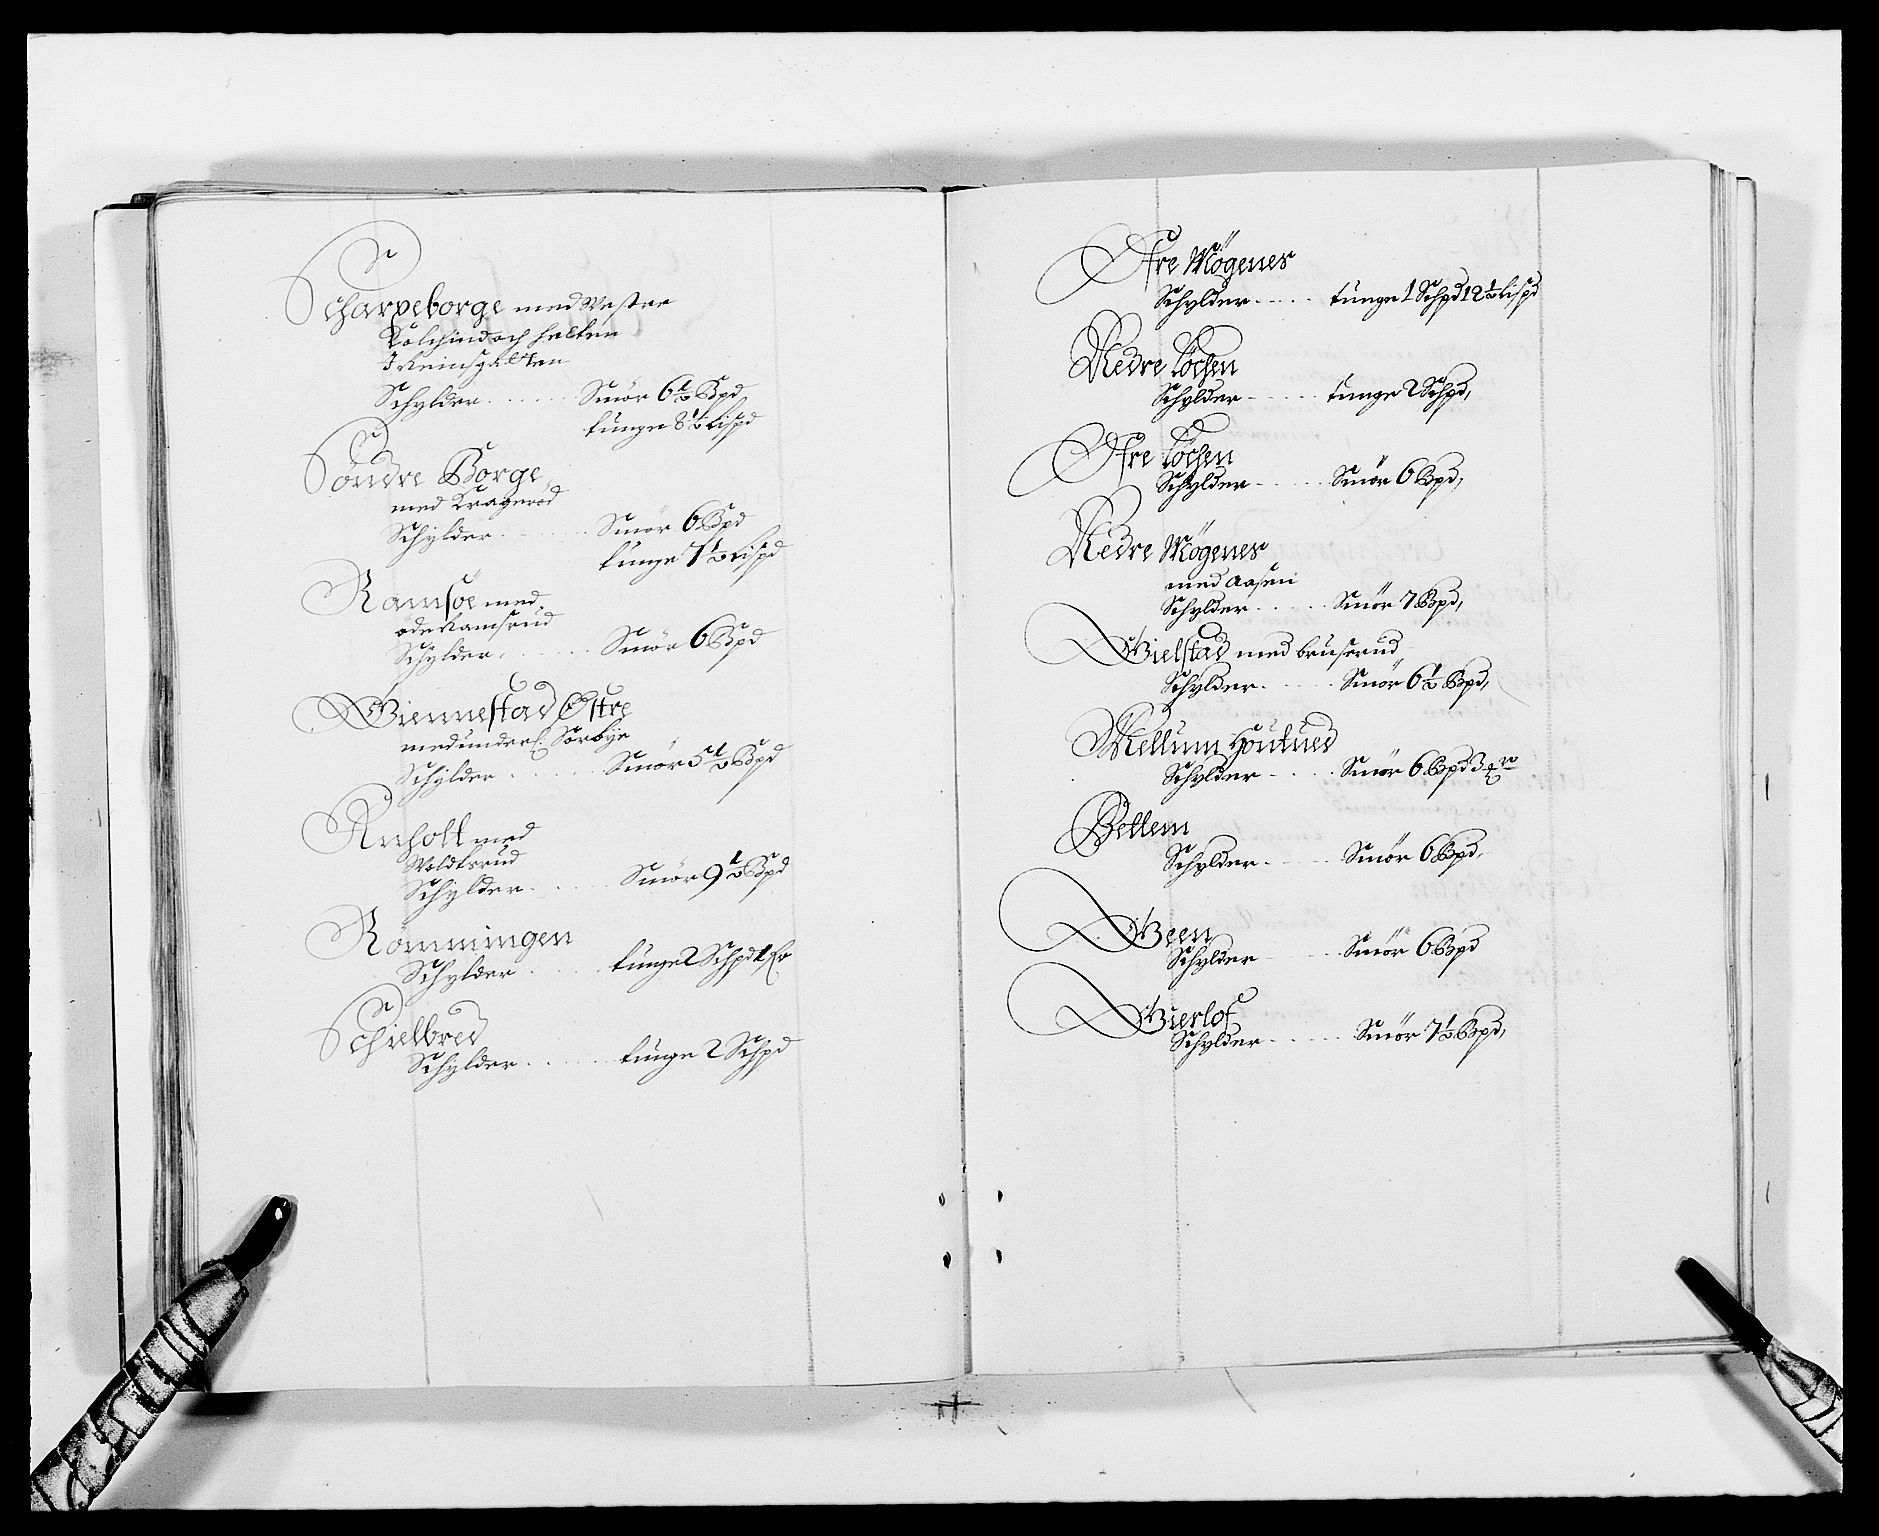 Scharpeborge med Westre
Kolchind och halten
I Reinsgalten
Schylder . . . . . Smör 6½ Bpd
tunge 8½ Lispd
Söndre Borge
med Kragerød
Schylder . . . . . Smör 6 Bpd
tunge 7½ Lispd
Ramsöe med
öde Ramsrud
Schylder . . . . . Smör 6 Bpd
Giennestad Östre
med underl: Sørbye
Schylder . . . . . Smör 5½ Bpd
Anholt med
Woldtsrud
Schylder . . . . . Smör 9½ Bpd
Römmingen
Schylder . . . . . tunge 2 Schpd
Schielbred
Schylder . . . . . tunge 2 Schpd
Øfre Møgenes
Schylder . . . . . tunge 1 Schpd 12½ Lispd
Nedre Løchen
Schylder . . . . . tunge 2 Schpd,
Øfre Løchen
Schylder . . . . . Smör 6 Bpd,
Nedre Møgenes
med Aasen
Schylder . . . . . Smör 7 Bpd,
Gielstad med bruserud
Schylder . . . . . Smör 6½ Bpd,
Mellum Houtued
Schylder . . . . . Smör 6 Bpd 3
Betlem
Schylder . . . . . Smör 6 Bpd,
Geen
Schylder . . . . . Smör 6 Bpd
Gierlof
Schylder . . . . . Smör 7½ Bpd,